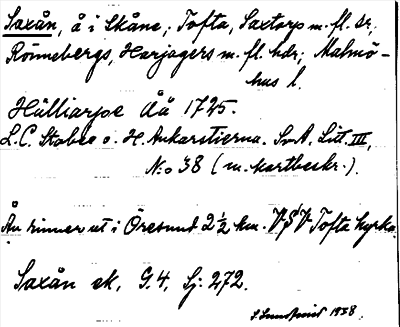 Saxån, å i Skåne; Tofta, Saxtorp m. fl. sr;
Rönnebergs, Harjagers m. fl. hdr; Malmö-
hus l.
Hälliarpe Åå 1725.
L. C. Stobee o. H. Ankarstierna. SvA. Litt. III,
N:o 38 (m. kartbeskr.).
Ån rinner ut i Öresund 2 1/2 km. VSV Tofta kyrka.
Saxån ek, G.4, Sj: 272.
1938.